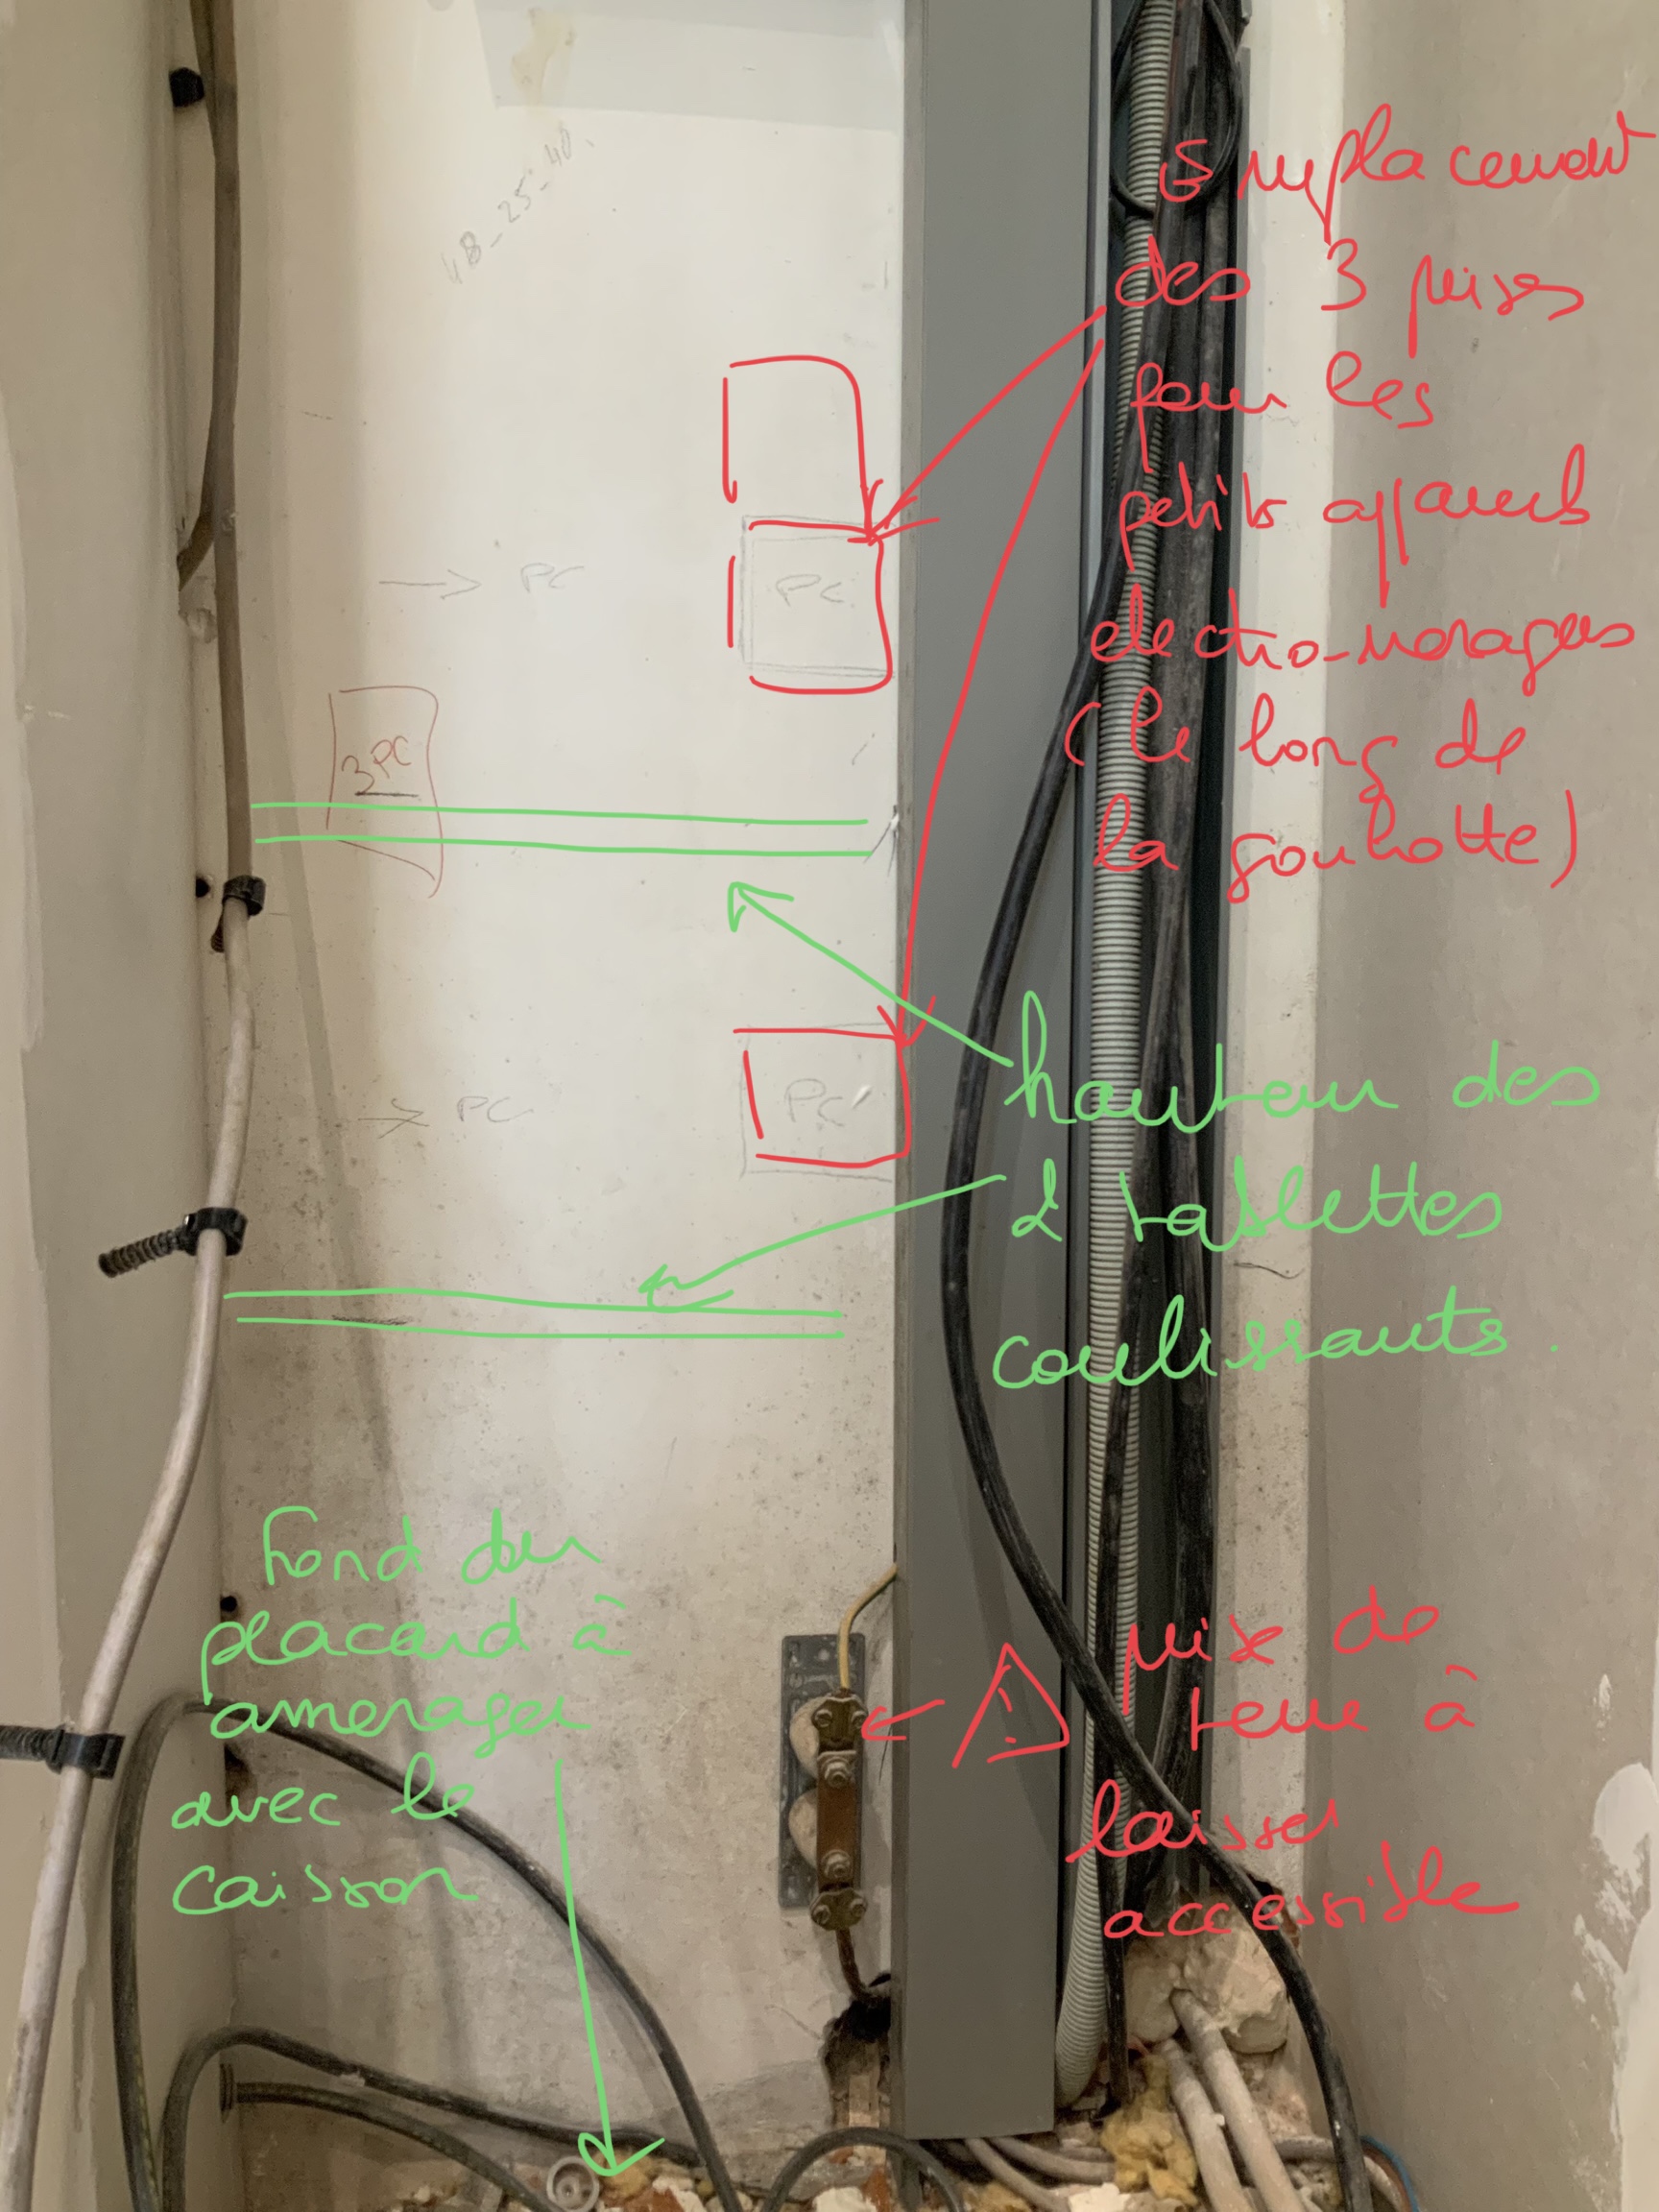 48-25-40.
Emplacement
des 3 prises
pour les
petits appareils
electro-menagers
(le long de
la goulotte)
→ PC
PC
3 PC
hauteur des
2 tablettes
coulissants.
→ PC
PC
Fond du
placard à
amenager
avec le
caisson
prise de
terre à
laisser
accessible
!